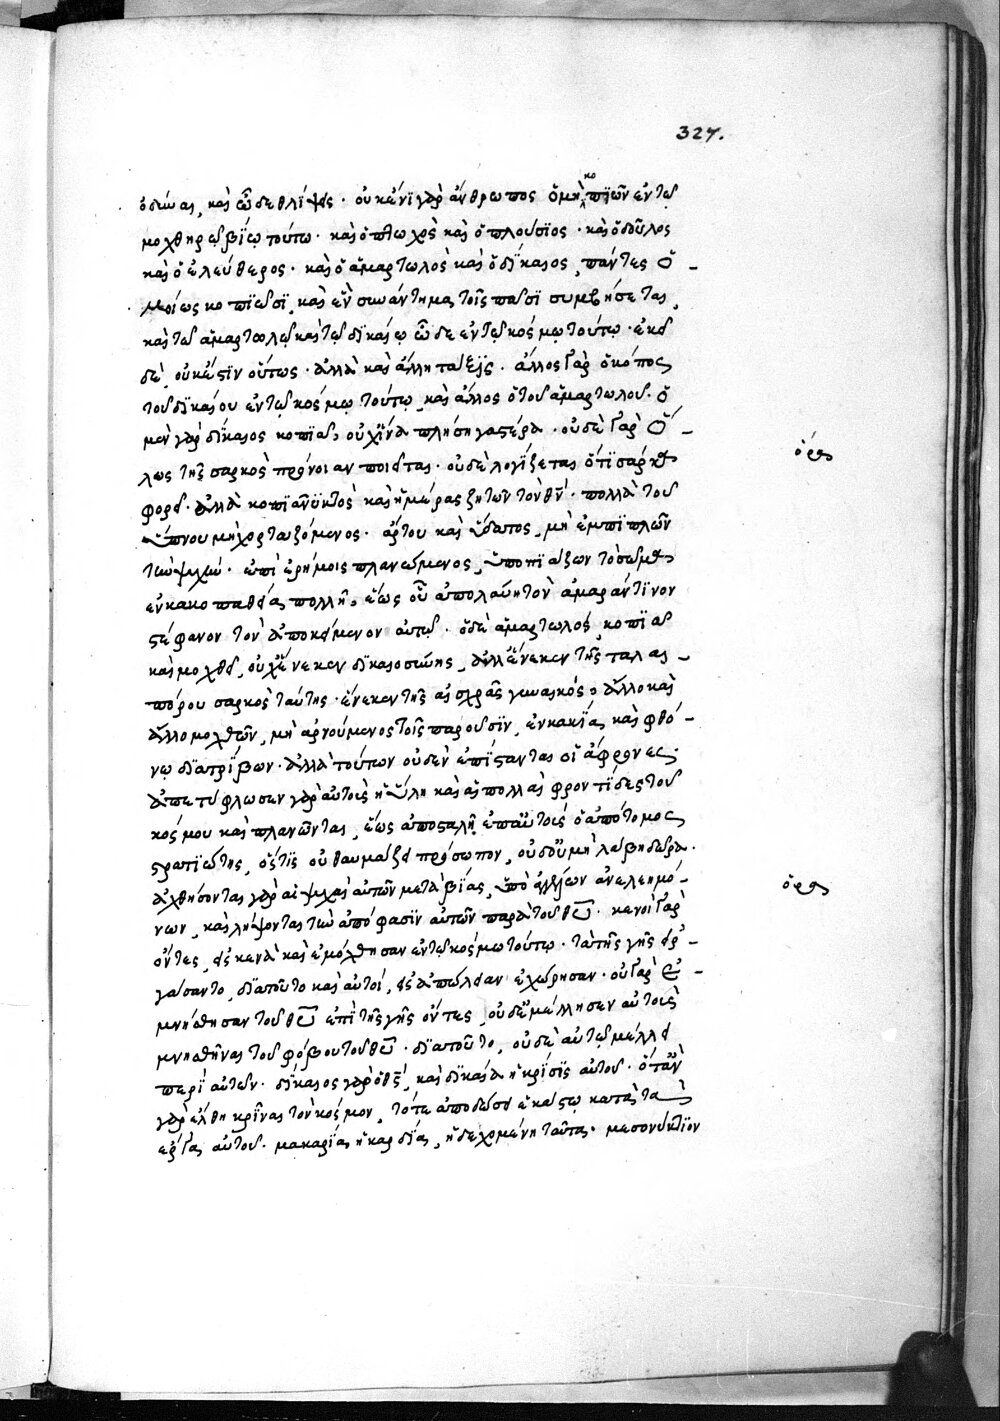 327.
ὀδύναι, καὶ ὧδε θλίψεις. οὐκ ἔνι γὰρ ἄνθρωπος ὁ μὴ κοπιῶν ἐν τῷ
μοχθηρῷ βίῳ τούτῳ. καὶ ὁ πτωχὸς καὶ ὁ πλούσιος. καὶ ὁ δοῦλος
καὶ ὁ ἐλεύθερος. καὶ ὁ ἁμαρτωλὸς καὶ ὁ δίκαιος, πάντες ὁ-
μοίως κοπιῶσι, καὶ ἓν συνάντημα τοῖς πᾶσι συμβήσεται,
καὶ τῷ ἁμαρτωλῷ καὶ τῷ δικαίῳ ὧδε ἐν τῷ κόσμῳ τούτῳ. ἐκεῖ
δὲ, οὐκ ἔστιν οὕτως. ἀλλὰ καὶ ἄλλη τάξις. ἄλλος γὰρ ὁ κόπος
τοῦ δικαίου ἐν τῷ κόσμῳ τούτῳ, καὶ ἄλλος ὁ τοῦ ἁμαρτωλοῦ. ὁ
μὲν γὰρ δίκαιος κοπιᾷ, οὐχ ἵνα πλήσῃ γαστέρα. οὐδὲ γὰρ ὅ-
λως τῆς σαρκὸς πρόνοιαν ποιεῖται. οὐδὲ λογίζεται ὅτι σάρκα
φορεῖ. ἀλλὰ κοπιᾷ νυκτὸς καὶ ἡμέρας ζητῶν τὸν θν̄. πολλὰ τοῦ
ὕπνου μὴ χορταζόμενος. ἄρτου καὶ ὕδατος, μὴ ἐμπιπλῶν
τὴν ψυχήν. ἐπὶ ἐρήμοις πλανώμενος, ὑποπιάζων τὸ σῶμα
ἐν κακοπαθείᾳ πολλῇ, ἕως οὗ ἀπολαύῃ τὸν ἀμαράντινον
στέφανον τὸν ἀποκείμενον αὐτῷ. ὁ δὲ ἁμαρτωλὸς κοπιᾷ
καὶ μοχθεῖ, οὐχ ἕνεκεν δικαιοσύνης, ἀλλ' ἕνεκεν τῆς ταλαι-
πώρου σαρκὸς ταύτης. ἕνεκεν τῆς αἰσχρᾶς γυναικός, ἄλλο καὶ
ἄλλο μοχθῶν, μὴ ἀρκούμενος τοῖς παροῦσιν, ἐν κακίᾳ καὶ φθό-
νῳ διατρίβων. ἀλλὰ τούτων οὐδὲν ἐπίστανται οἱ ἄφρονες.
ἀπετύφλωσεν γὰρ αὐτοὺς ἡ ὕλη καὶ αἱ πολλαὶ φροντίδες τοῦ
κόσμου καὶ πλανῶνται, ἕως ἀποσταλῇ ἐπ' αὐτοὺς ὁ ἀπότομος
στρατιώτης, ὅστις οὐ θαυμάζει πρόσωπον, οὐδ' οὐ μὴ λάβῃ δῶρα.
ἀχθήσονται γὰρ αἱ ψυχαὶ αὐτῶν μετὰ βίας, ὑπὸ ἀγγέλων ἀνελεημό-
νων, καὶ λήψονται τὴν ἀπόφασιν αὐτῶν παρὰ τοῦ θῡ. κενοὶ γὰρ
ὄντες, εἰς κενὰ καὶ ἐμόχθησαν ἐν τῷ κόσμῳ τούτῳ. τὰ τῆς γῆς εἰρ-
γάσαντο, διὰ τοῦτο καὶ αὐτοὶ, εἰς ἀπώλειαν ἐχώρησαν. οὐ γὰρ ἐ-
μνήσθησαν τοῦ θῡ ἐπὶ τῆς γῆς ὄντες, οὐδ' ἐμέλησεν αὐτοῖς
μνησθῆναι τοῦ φόβου τοῦ θῡ. διὰ τοῦτο, οὐδὲ αὐτῷ μέλλει
περὶ αὐτῶν. δίκαιος γὰρ ὁ θς̄, καὶ δικαία ἡ κρίσις αὐτοῦ. ὅταν
γὰρ ἔλθῃ κρῖναι τὸν κόσμον, τότε ἀποδώσει ἑκάστῳ κατὰ τὰ
ἔργα αὐτοῦ. μακαρία ἡ καρδία, ἡ δεχομένη ταῦτα. μεσονύκτιον
ὅρα
ὅρα